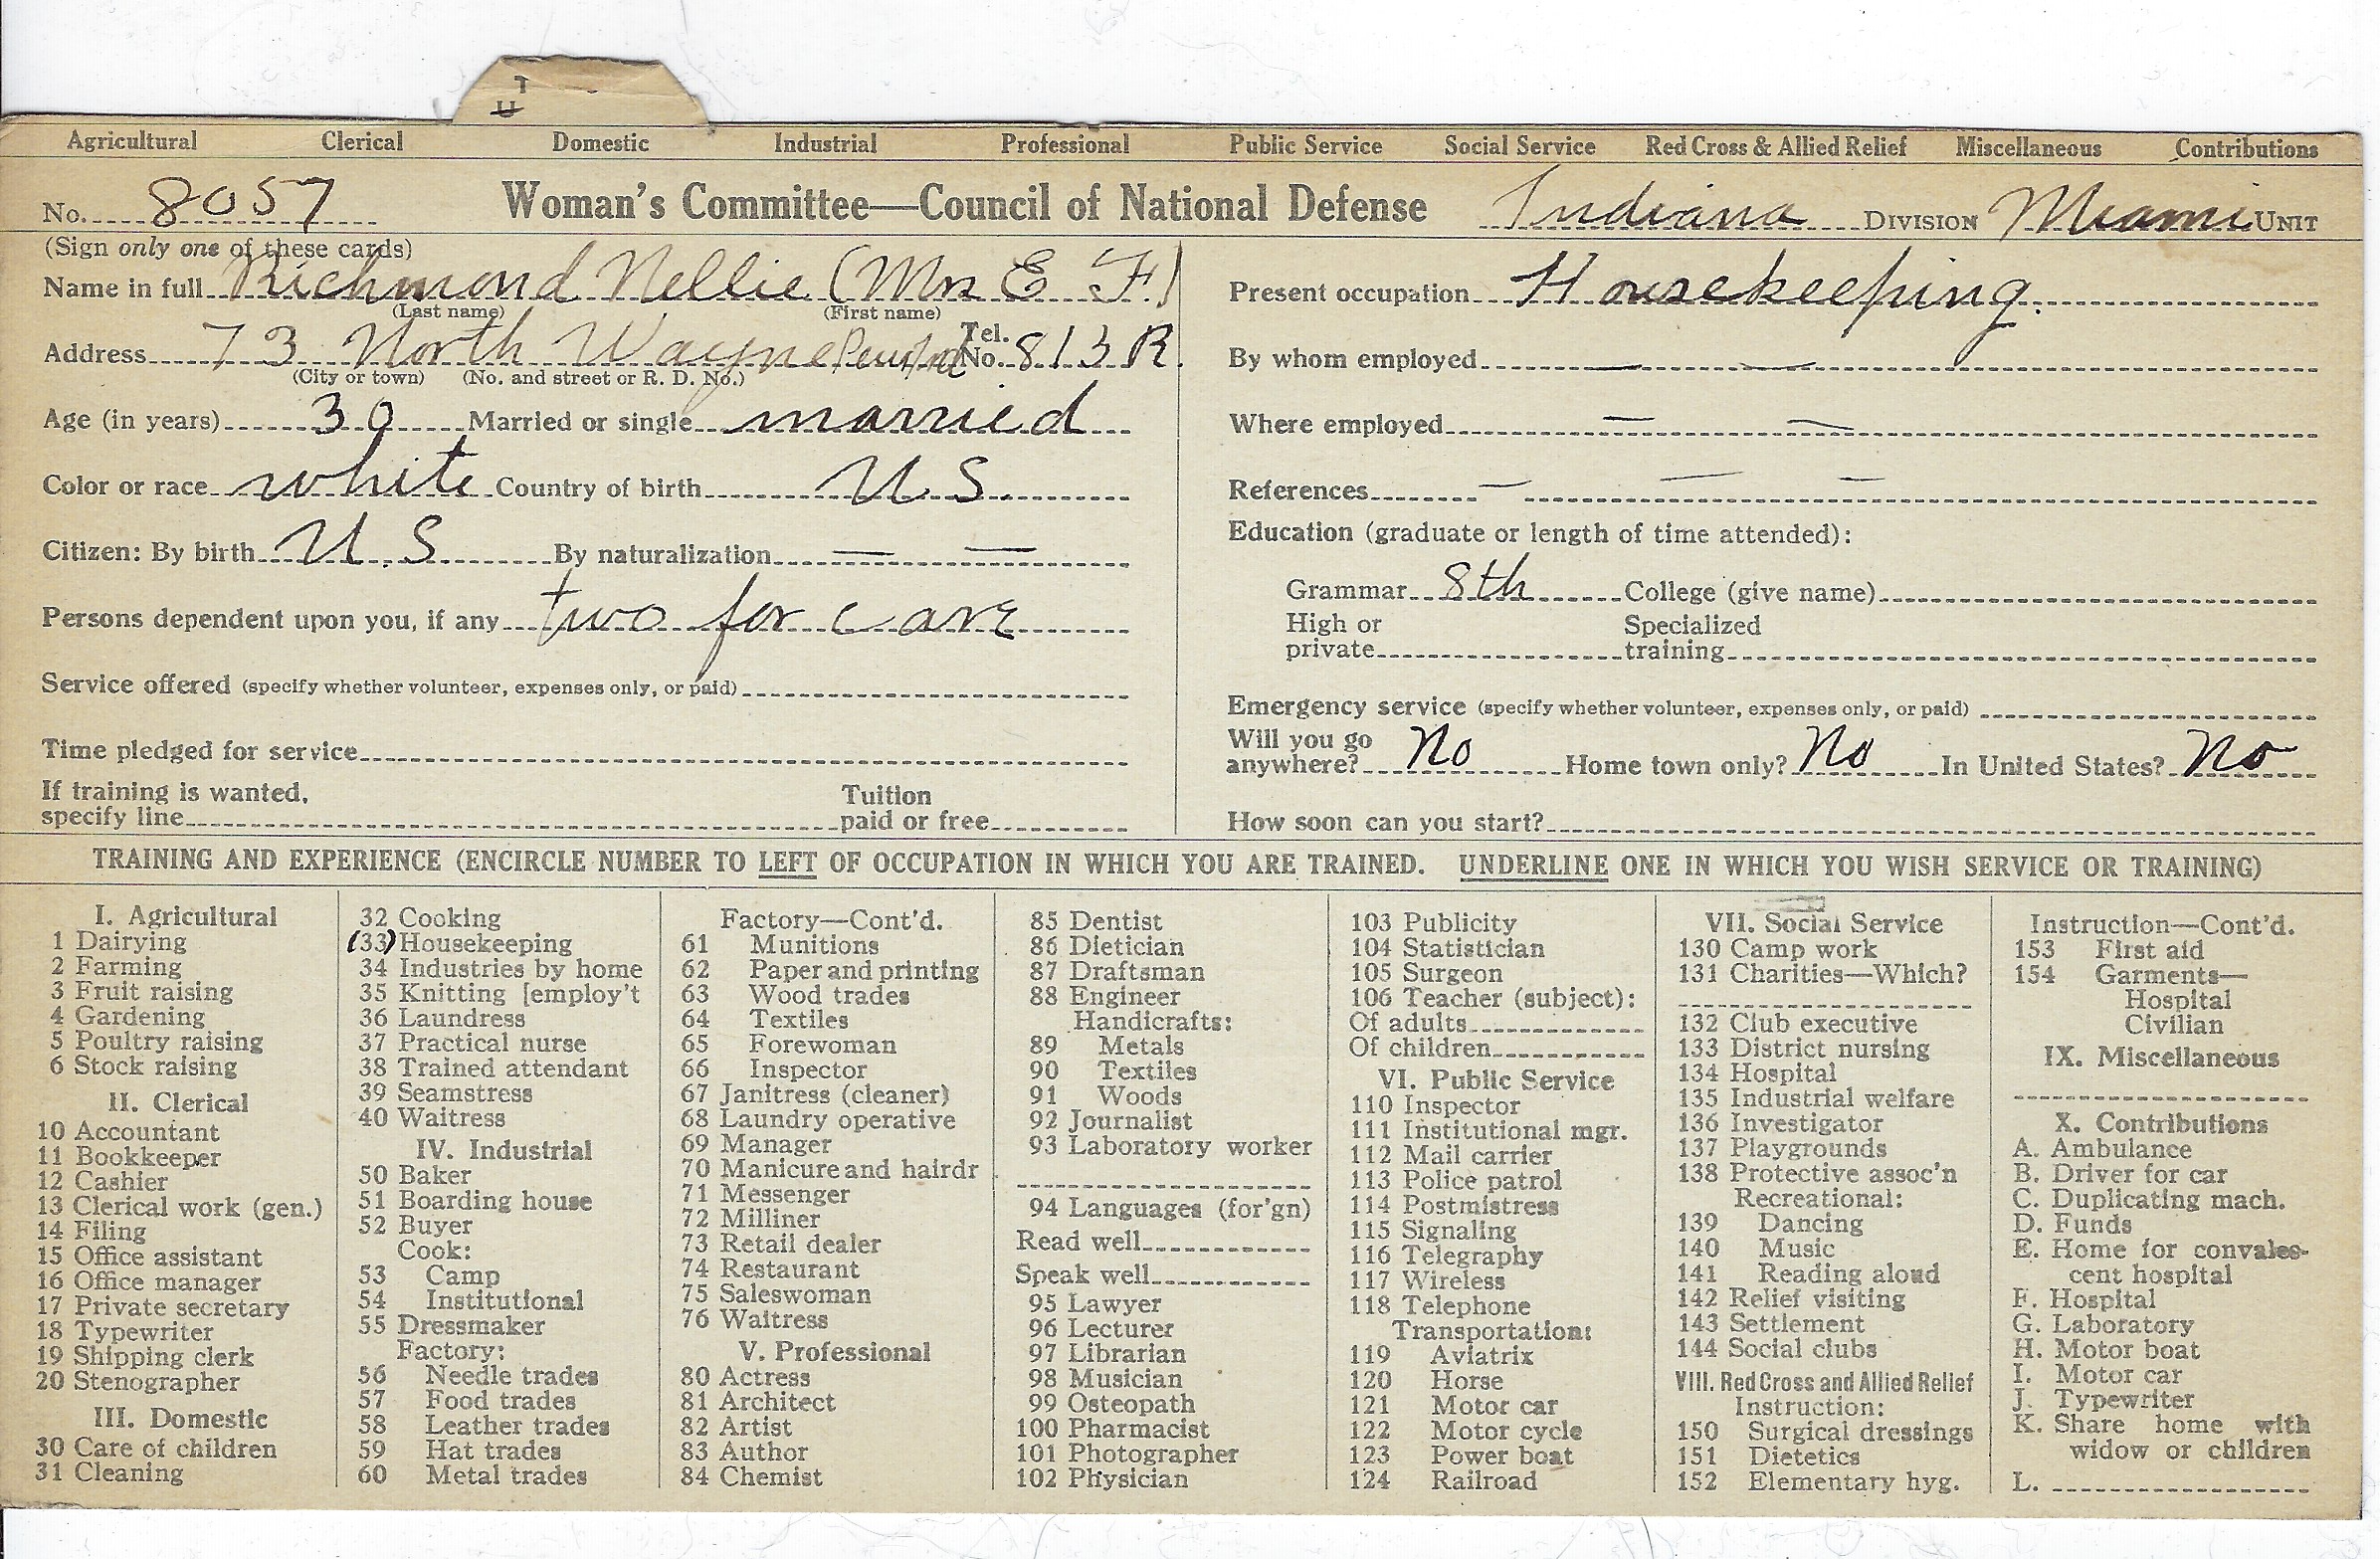 Agricultural Clerical Domestic Industrial Professional Public Service Social Service Red Cross & Allied Relief Miscellaneous Contributions
No. 8057 Woman's Committee—Council of National Defense Indiana DIVISION Miami UNIT
(Sign only one of these cards)
Name in full Richmond Nellie (Mrs E F)
(Last name) (First name)
Address 73 North Wayne Peru Ind Tel. No. 813 R.
(City or town) (No. and street or R. D. No.)
Age (in years) 30 Married or single married
Color or race white Country of birth U S
Citizen: By birth U. S By naturalization — —
Persons dependent upon you, if any two for care
Service offered (specify whether volunteer, expenses only, or paid)
Time pledged for service
If training is wanted, specify line Tuition paid or free
Present occupation Housekeeping.
By whom employed — —
Where employed — —
References — — —
Education (graduate or length of time attended):
Grammar 8th College (give name)
High or private Specialized training
Emergency service (specify whether volunteer, expenses only, or paid)
Will you go anywhere? No Home town only? No In United States? No
How soon can you start?
TRAINING AND EXPERIENCE (ENCIRCLE NUMBER TO LEFT OF OCCUPATION IN WHICH YOU ARE TRAINED. UNDERLINE ONE IN WHICH YOU WISH SERVICE OR TRAINING)
I. Agricultural
1 Dairying
2 Farming
3 Fruit raising
4 Gardening
5 Poultry raising
6 Stock raising
II. Clerical
10 Accountant
11 Bookkeeper
12 Cashier
13 Clerical work (gen.)
14 Filing
15 Office assistant
16 Office manager
17 Private secretary
18 Typewriter
19 Shipping clerk
20 Stenographer
III. Domestic
30 Care of children
31 Cleaning
32 Cooking
(33) Housekeeping
34 Industries by home
35 Knitting [employ't
36 Laundress
37 Practical nurse
38 Trained attendant
39 Seamstress
40 Waitress
IV. Industrial
50 Baker
51 Boarding house
52 Buyer
Cook:
53 Camp
54 Institutional
55 Dressmaker
Factory:
56 Needle trades
57 Food trades
58 Leather trades
59 Hat trades
60 Metal trades
Factory—Cont'd.
61 Munitions
62 Paper and printing
63 Wood trades
64 Textiles
65 Forewoman
66 Inspector
67 Janitress (cleaner)
68 Laundry operative
69 Manager
70 Manicure and hairdr
71 Messenger
72 Milliner
73 Retail dealer
74 Restaurant
75 Saleswoman
76 Waitress
V. Professional
80 Actress
81 Architect
82 Artist
83 Author
84 Chemist
85 Dentist
86 Dietician
87 Draftsman
88 Engineer
Handicrafts:
89 Metals
90 Textiles
91 Woods
92 Journalist
93 Laboratory worker
94 Languages (for'gn)
Read well
Speak well
95 Lawyer
96 Lecturer
97 Librarian
98 Musician
99 Osteopath
100 Pharmacist
101 Photographer
102 Physician
103 Publicity
104 Statistician
105 Surgeon
106 Teacher (subject):
Of adults
Of children
VI. Public Service
110 Inspector
111 Institutional mgr.
112 Mail carrier
113 Police patrol
114 Postmistress
115 Signaling
116 Telegraphy
117 Wireless
118 Telephone
Transportation:
119 Aviatrix
120 Horse
121 Motor car
122 Motor cycle
123 Power boat
124 Railroad
VII. Social Service
130 Camp work
131 Charities—Which?
132 Club executive
133 District nursing
134 Hospital
135 Industrial welfare
136 Investigator
137 Playgrounds
138 Protective assoc'n
Recreational:
139 Dancing
140 Music
141 Reading aloud
142 Relief visiting
143 Settlement
144 Social clubs
VIII. Red Cross and Allied Relief
Instruction:
150 Surgical dressings
151 Dietetics
152 Elementary hyg.
Instruction—Cont'd.
153 First aid
154 Garments—
Hospital
Civilian
IX. Miscellaneous
X. Contributions
A. Ambulance
B. Driver for car
C. Duplicating mach.
D. Funds
E. Home for convales-
cent hospital
F. Hospital
G. Laboratory
H. Motor boat
I. Motor car
J. Typewriter
K. Share home with
widow or children
L.